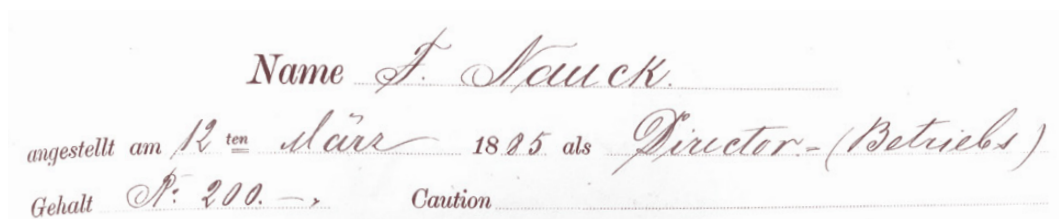 Name F. Nauck.
angestellt am 12 ten März 1895 als Director.-(Betriebs)
Gehalt P: 200.—,   Caution